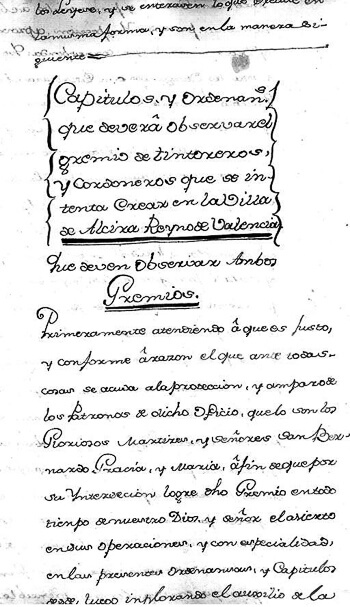 los deseye, y se enteraren lo que
la misma forma, y son en la manera si-
guiente=
Capitulos, y ordenan.s
que deverâ observar el
gremio de tintoreros,
y Cordoneros que se in-
tenta Crear en la Villa
de Alcira Reyno de Valencia
Que deven observar Ambos
Gremios.
Primeramente atendiendo â que es justo,
y conforme ârazon el que ante todas
cosas se acuda ala proteccion, y amparo de
los Patronos de dicho Oficio, que lo son los
Gloriosos Martires, y señores San Ber-
nardo, Gracia, y Maria, âfin de que por
su Yntercecion logre dho Gremio en todo
tiempo de nuestro Dios, y señor el acierto
en sus operaciones, y con especialidad,
en las presentes Ordenansas, y Capitulos
desde luego implorando el auxilio de la